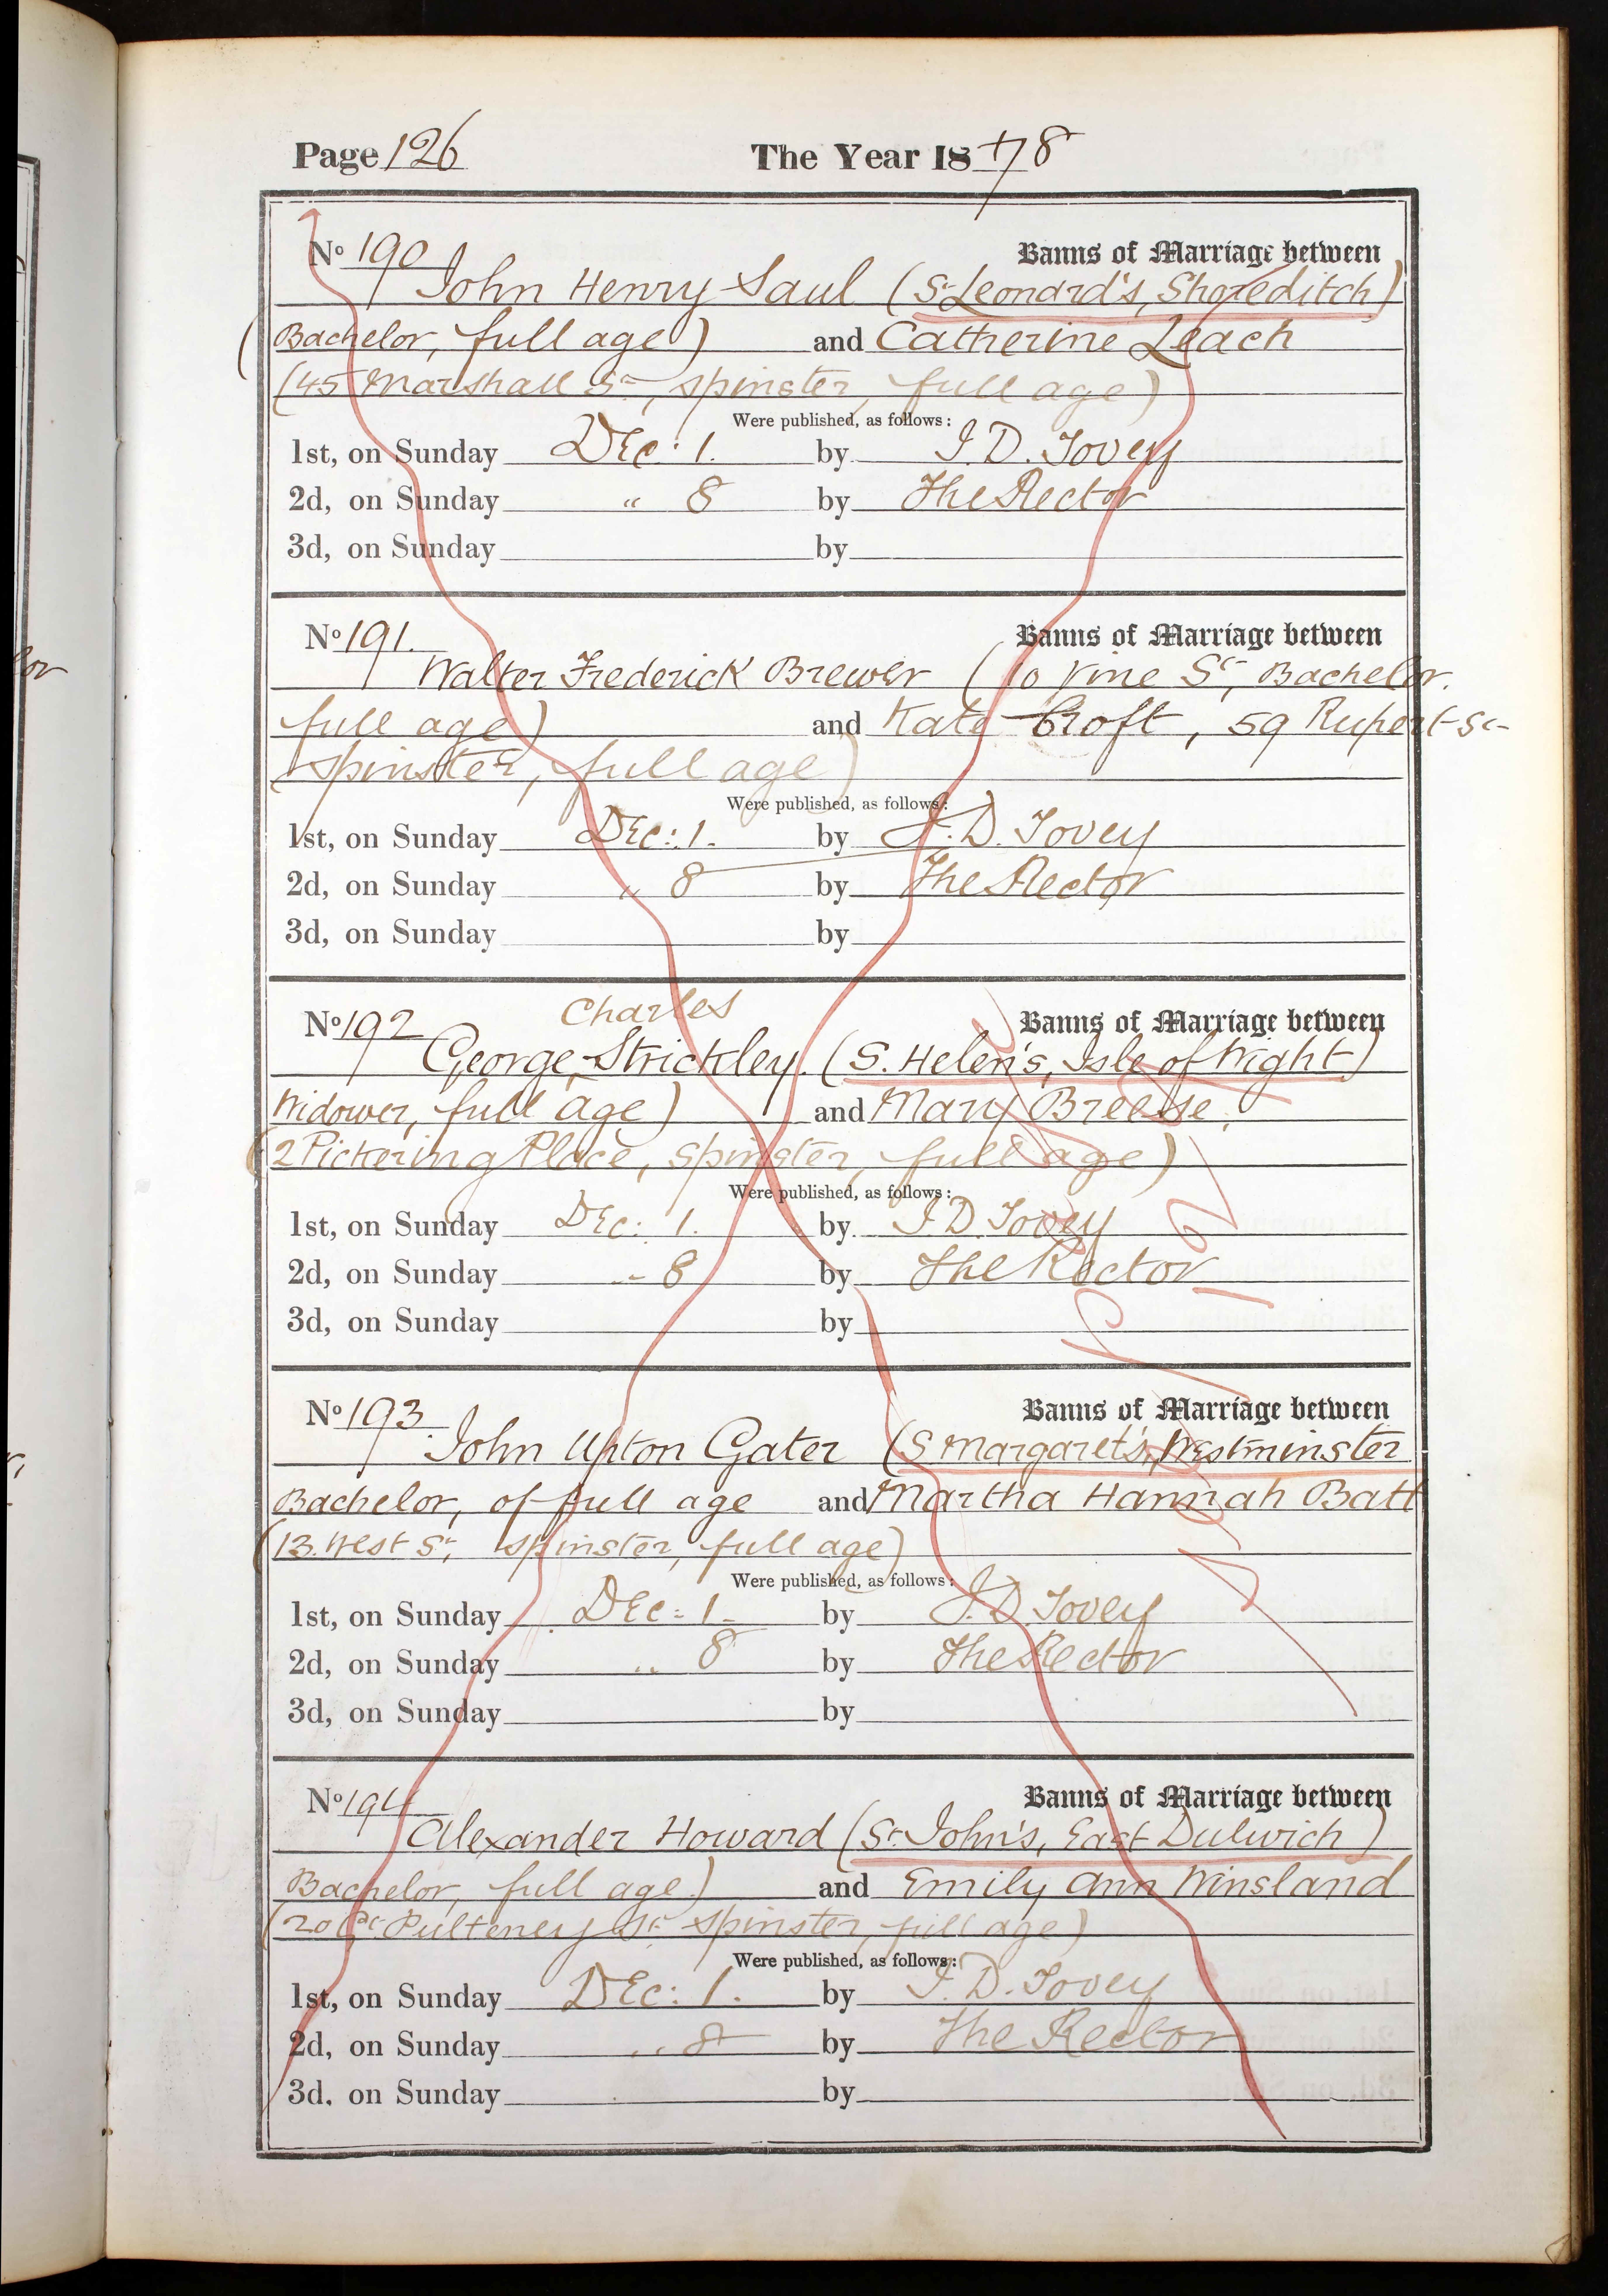 Page 126 The Year 1878
No 190 Banns of Marriage between
John Henry Saul (St Leonard's, Shoreditch)
(Bachelor, full age) and Catherine Leach
(45 Marshall St, spinster, full age)
Were published, as follows:
1st, on Sunday Dec: 1. by J. D. Tovey
2d, on Sunday " 8 by The Rector
3d, on Sunday by
No 191. Banns of Marriage between
Walter Frederick Brewer (10 Vine St, Bachelor.
full age) and Kate Croft, 59 Rupert St
spinster, full age)
Were published, as follows:
1st, on Sunday Dec: 1. by J. D. Tovey
2d, on Sunday " 8 by The Rector
3d, on Sunday by
Charles
No 192 Banns of Marriage between
George Strickley. (S. Helen's, Isle of Wight)
Widower, full age) and Mary Breese.
(2 Pickering Place, spinster, full age)
Were published, as follows:
1st, on Sunday Dec: 1. by J. D. Tovey
2d, on Sunday " 8 by The Rector
3d, on Sunday by
No 193 Banns of Marriage between
John Upton Gater (S Margaret's, Westminster
Bachelor, of full age and Martha Hannah Batt
(13. West St, spinster, full age)
Were published, as follows:
1st, on Sunday Dec: 1. by J. D. Tovey
2d, on Sunday " 8 by The Rector
3d, on Sunday by
No 194 Banns of Marriage between
Alexander Howard (St John's, East Dulwich)
Bachelor, full age) and Emily Ann Winsland
(20 Gt Pulteney St spinster, full age)
Were published, as follows:
1st, on Sunday Dec: 1. by J. D. Tovey
2d, on Sunday " 8 by The Rector
3d, on Sunday by